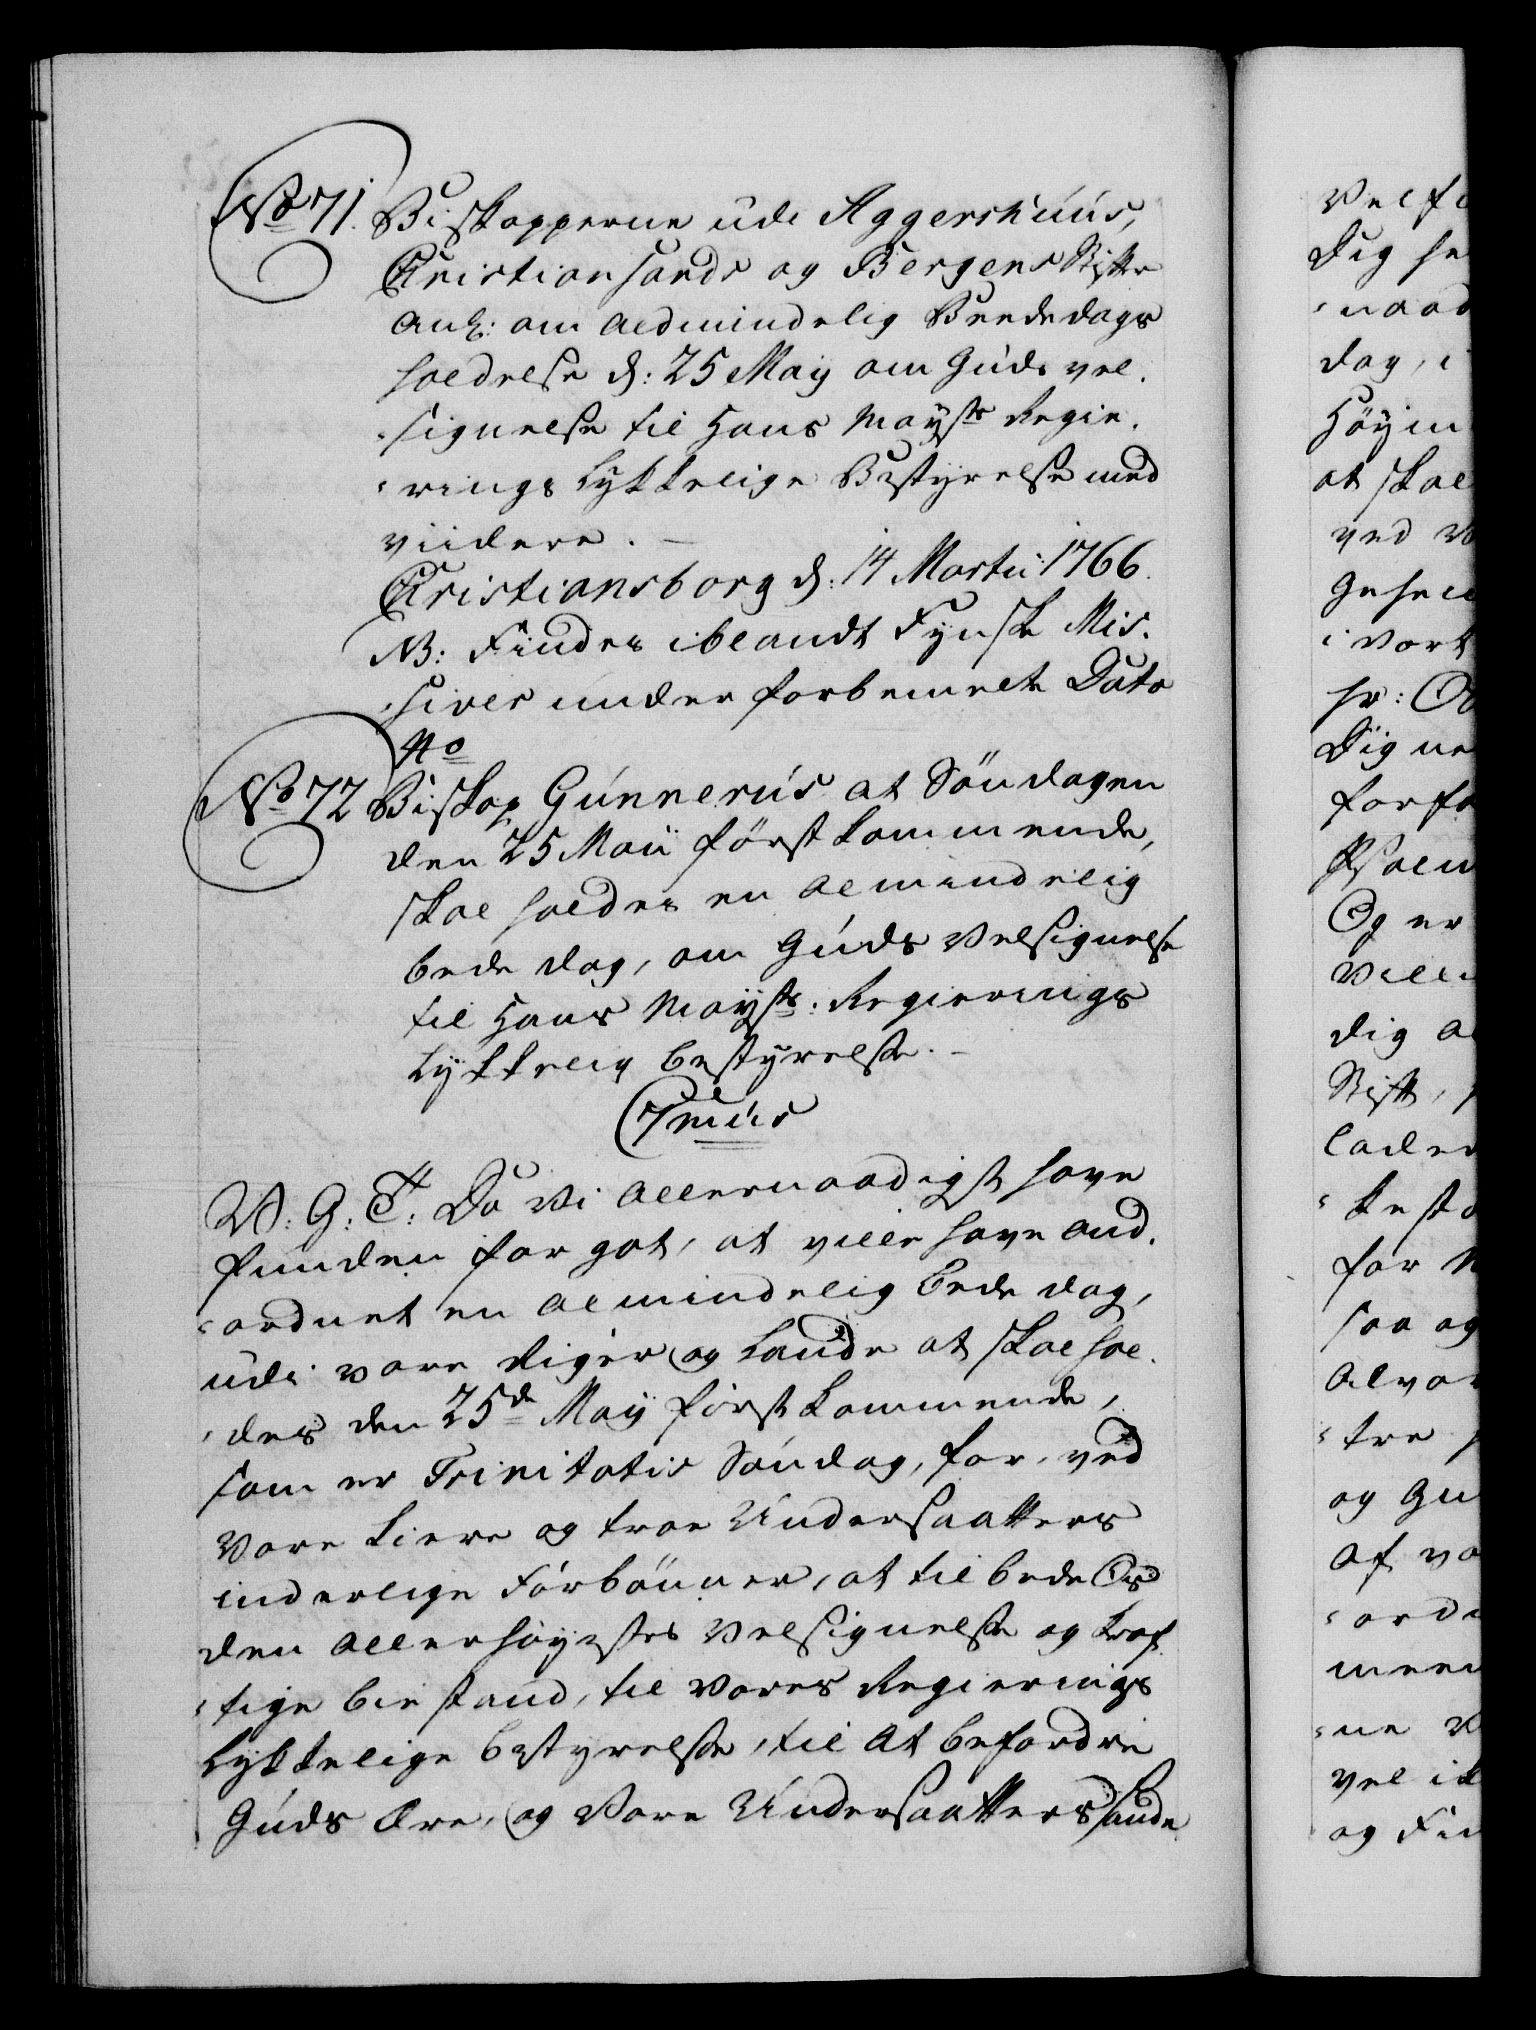 No 71. Biskopperne udi Aggershuus,
Christiansands og Bergens Stifter
anl: om aldmindelig Beededags
holdelse d: 25 May om Guds vel-
-signelse til Hans Mayst: Regie-
-rings lykkelige Bestyrelse med
viidere. -
Christiansborg d: 14 Martii 1766.
NB: Findes iblandt Fynske Mis-
-siver under forbemelte Dato
No
No 72 Biskop Gunnerus at Søndagen
den 25 Maii førstkommende,
skal holdes en almindelig
bede dag, om Guds Velsignelse
til Hans Mayst: Regierings
Lykkelig bestyrelse. -
7mus
V: G: T: Da Vi allernaadigst have
funden for got, at ville have and-
-ordnet en almindelig bede dag,
udi vore Riger og Lande at skal hol-
-des den 25de May førstkommende,
som er Trinitatis Søndag, for, ved
Vore kiere og troe Undersaatters
inderlige Forbønner, at tilbede Os
den allerhøyestes Velsignelse og kraf-
-tige bistand, til Vores Regierings
Lykkelige bestyrelse, til at befordre
Guds Ære, og Vore Undersaatters sande
Velf
Dig he
-naad
dag, i
Høyin
at skal
ved V
i vort
hr: O
Dig ne
forfa
Psalm
Og er
dig a
Stift,
lader
for
saa og
alvor
-tre
og Gu
af vo
-ordn
-ne
vel ik
og